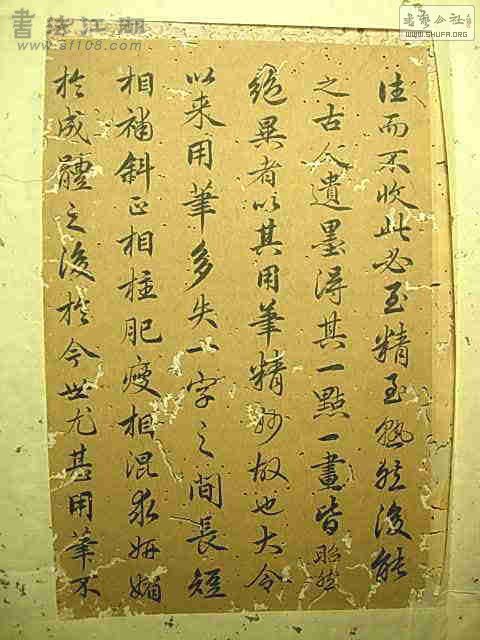 書法江湖
www.sf108.com
书艺公社
WWW.SHUFA.ORG
往而不收此必至精至熟然後能
之古人遺墨得其一點一畫皆昭然
絕異者以其用筆精妙故也大令
以来用筆多失一字之間長短
相補斜正相拄肥瘦相混求妍媚
於成體之後於今世尤甚用筆不